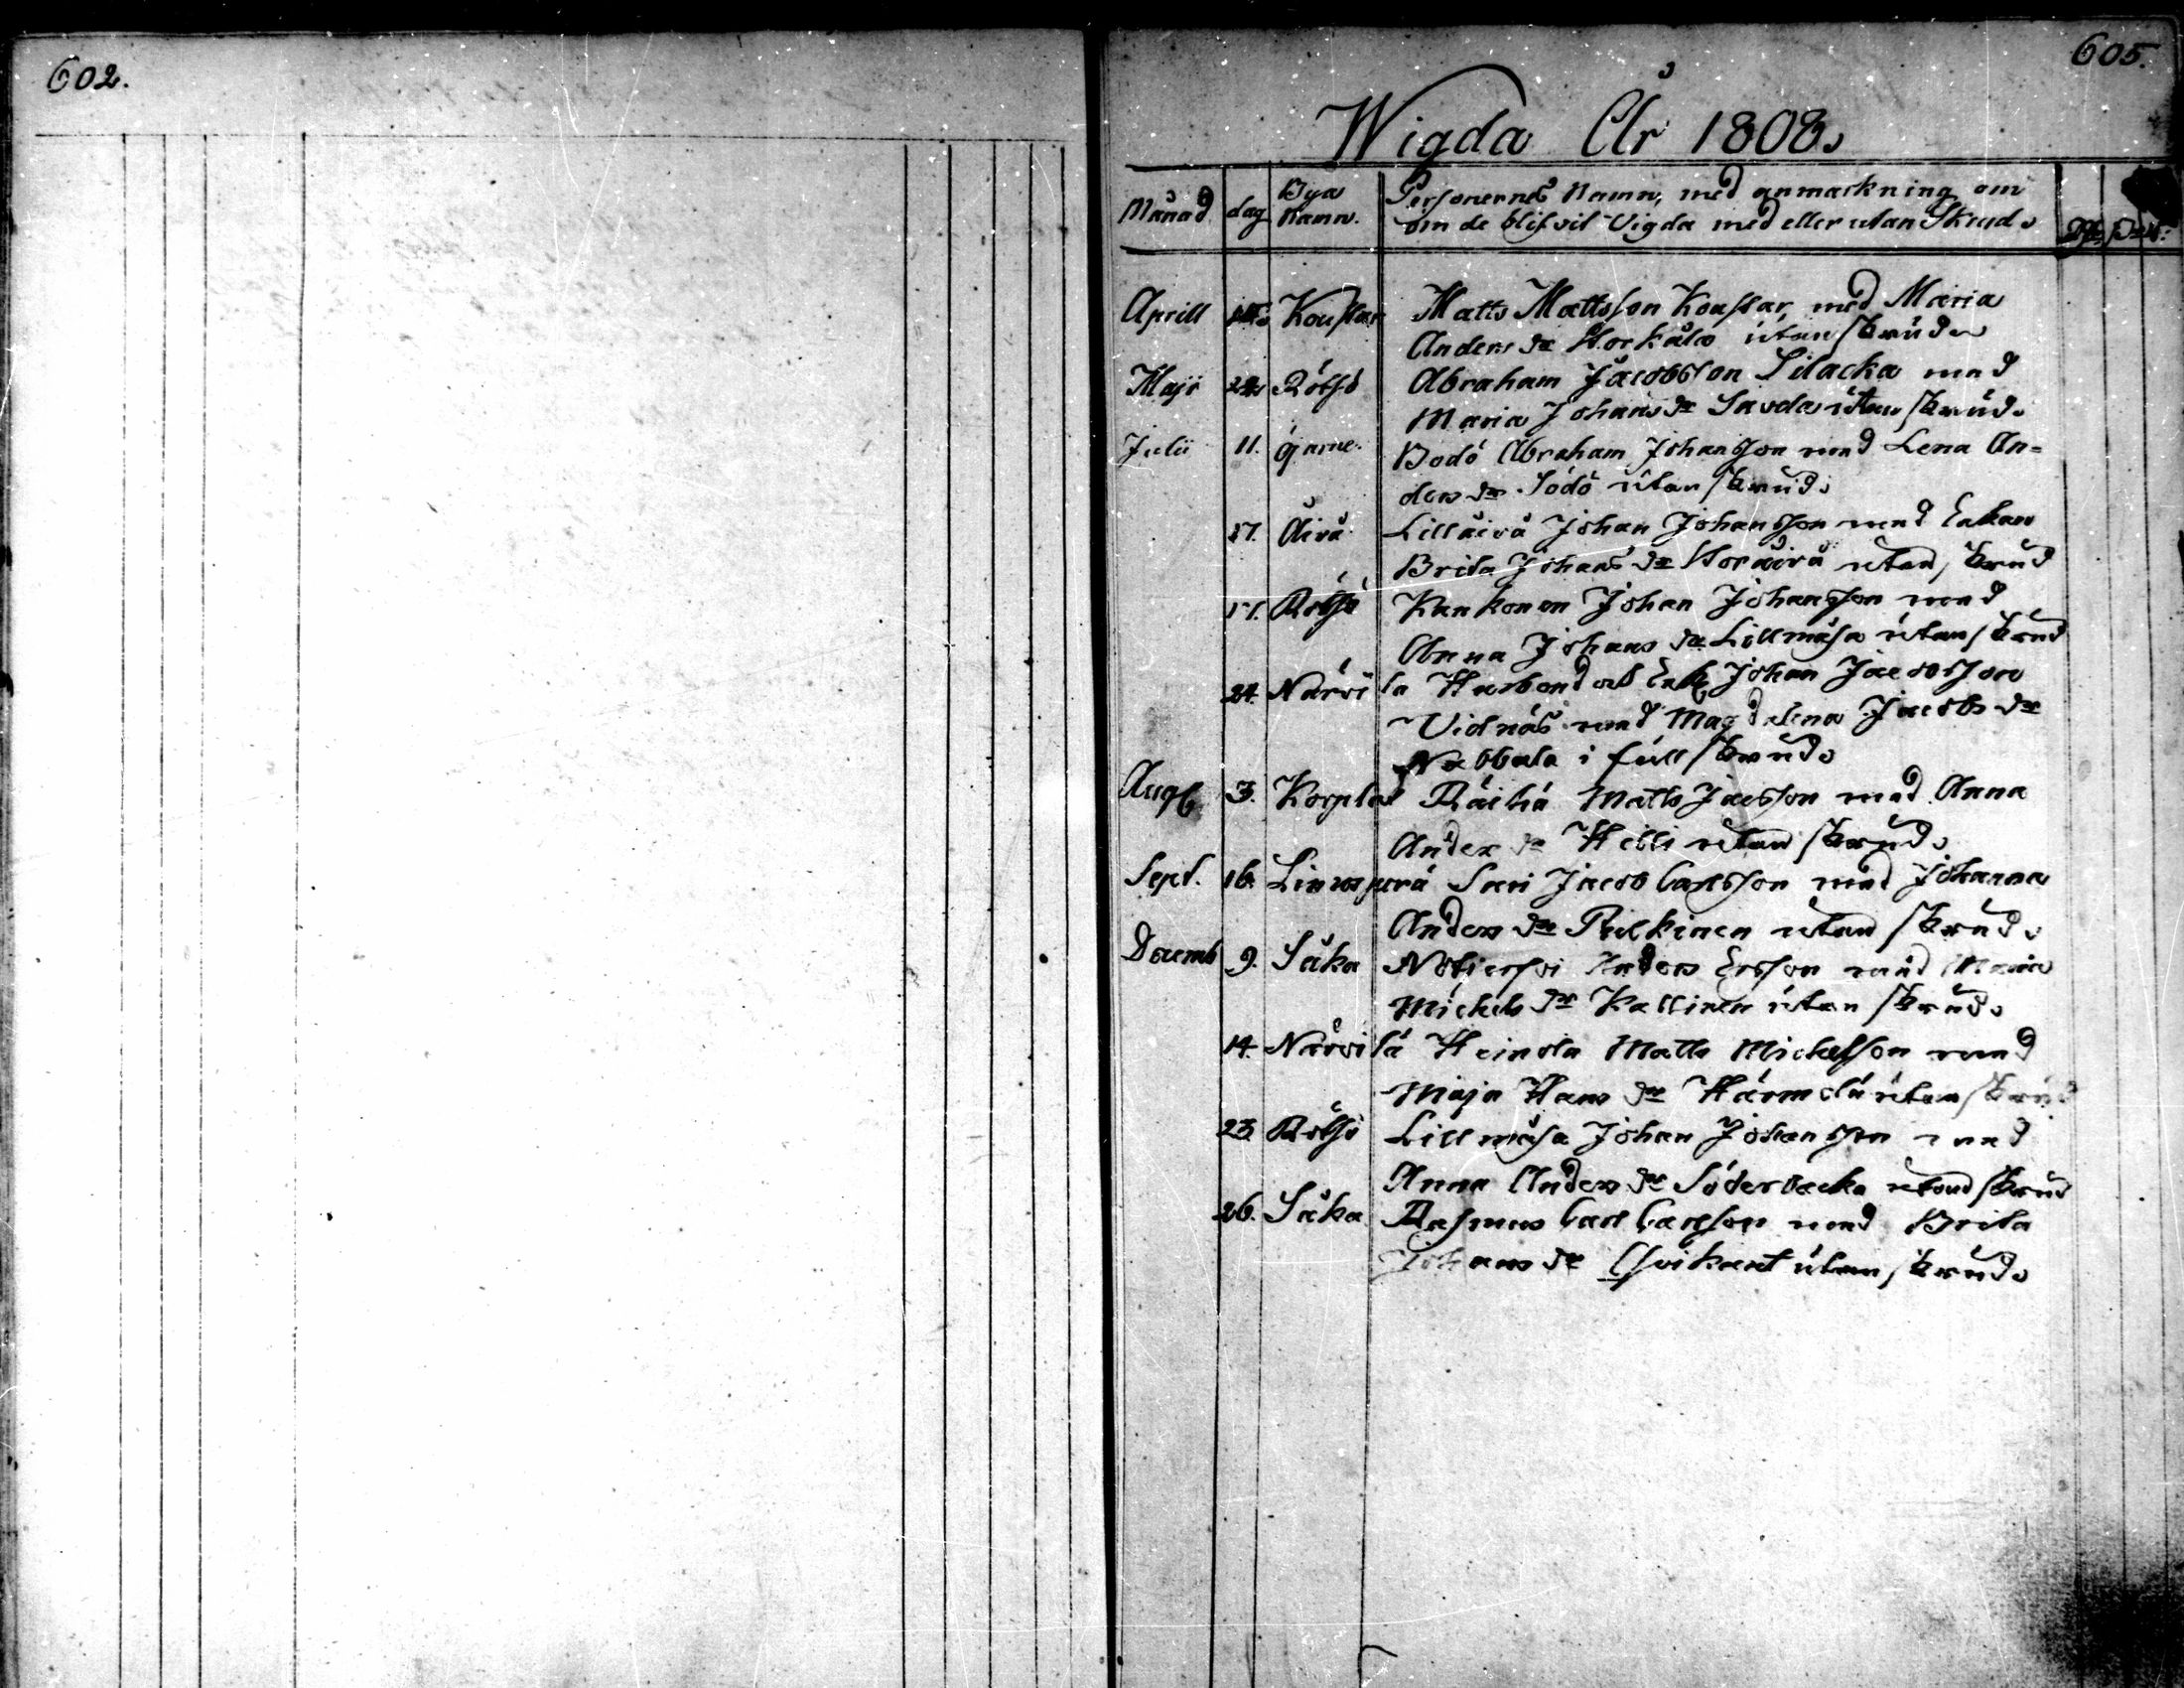 602.
605.
Wigda År 1808.
Månad dag Bya Namn. Personernes Namn, med anmarkning om
om de blifvit Vigda med eller utan Skrud.
Aprill Kouslar Matts Mattsson Kouslar, med Maria
Anders dr Storkåla utan skrud
Maji 24 Rötsö Abraham Jacobsson Silacka med
Maria Johans dr Savela utan skrud.
Julii 11. Öjarne. Bodö Abraham Johansson med Lena An=
ders dr Södö utan skrud.
17. Åivå Lillåivå Johan Johansson med Enkan
Brita Johans dr Storåivå utan skrud
17. Rötsö Kankonen Johan Johansson med
Anna Johans dr Lillmåsa utan skrud
24. Närvilä Husbond och Enkl Johan Jacobsson
Vidnäs med Magdalena Jacobs dr
Nabbala i full skrud.
Aug 3. Korplax Räihä Matts Jacsson med Anna
Anders dr Heikki utan skrud.
Sept. 16. Linnusperä Sari Jacob Carlsson med Johanna
Anders dr Pulkinen utan skrud.
Decemb 9. Såka Anders Ersson med Maria
Mickels dr Kallinen utan skrud.
14. Närvilä Heinola Matts Mickelsson med
Maja Hans dr Härmälä utan skrud
23. Rötsö Lillmåsa Johan Johansson med
Anna Anders dr Söderbacka utan skrud
26. Såka Rasmus Carl Carlsson med Brita
Johans dr utan skrud.